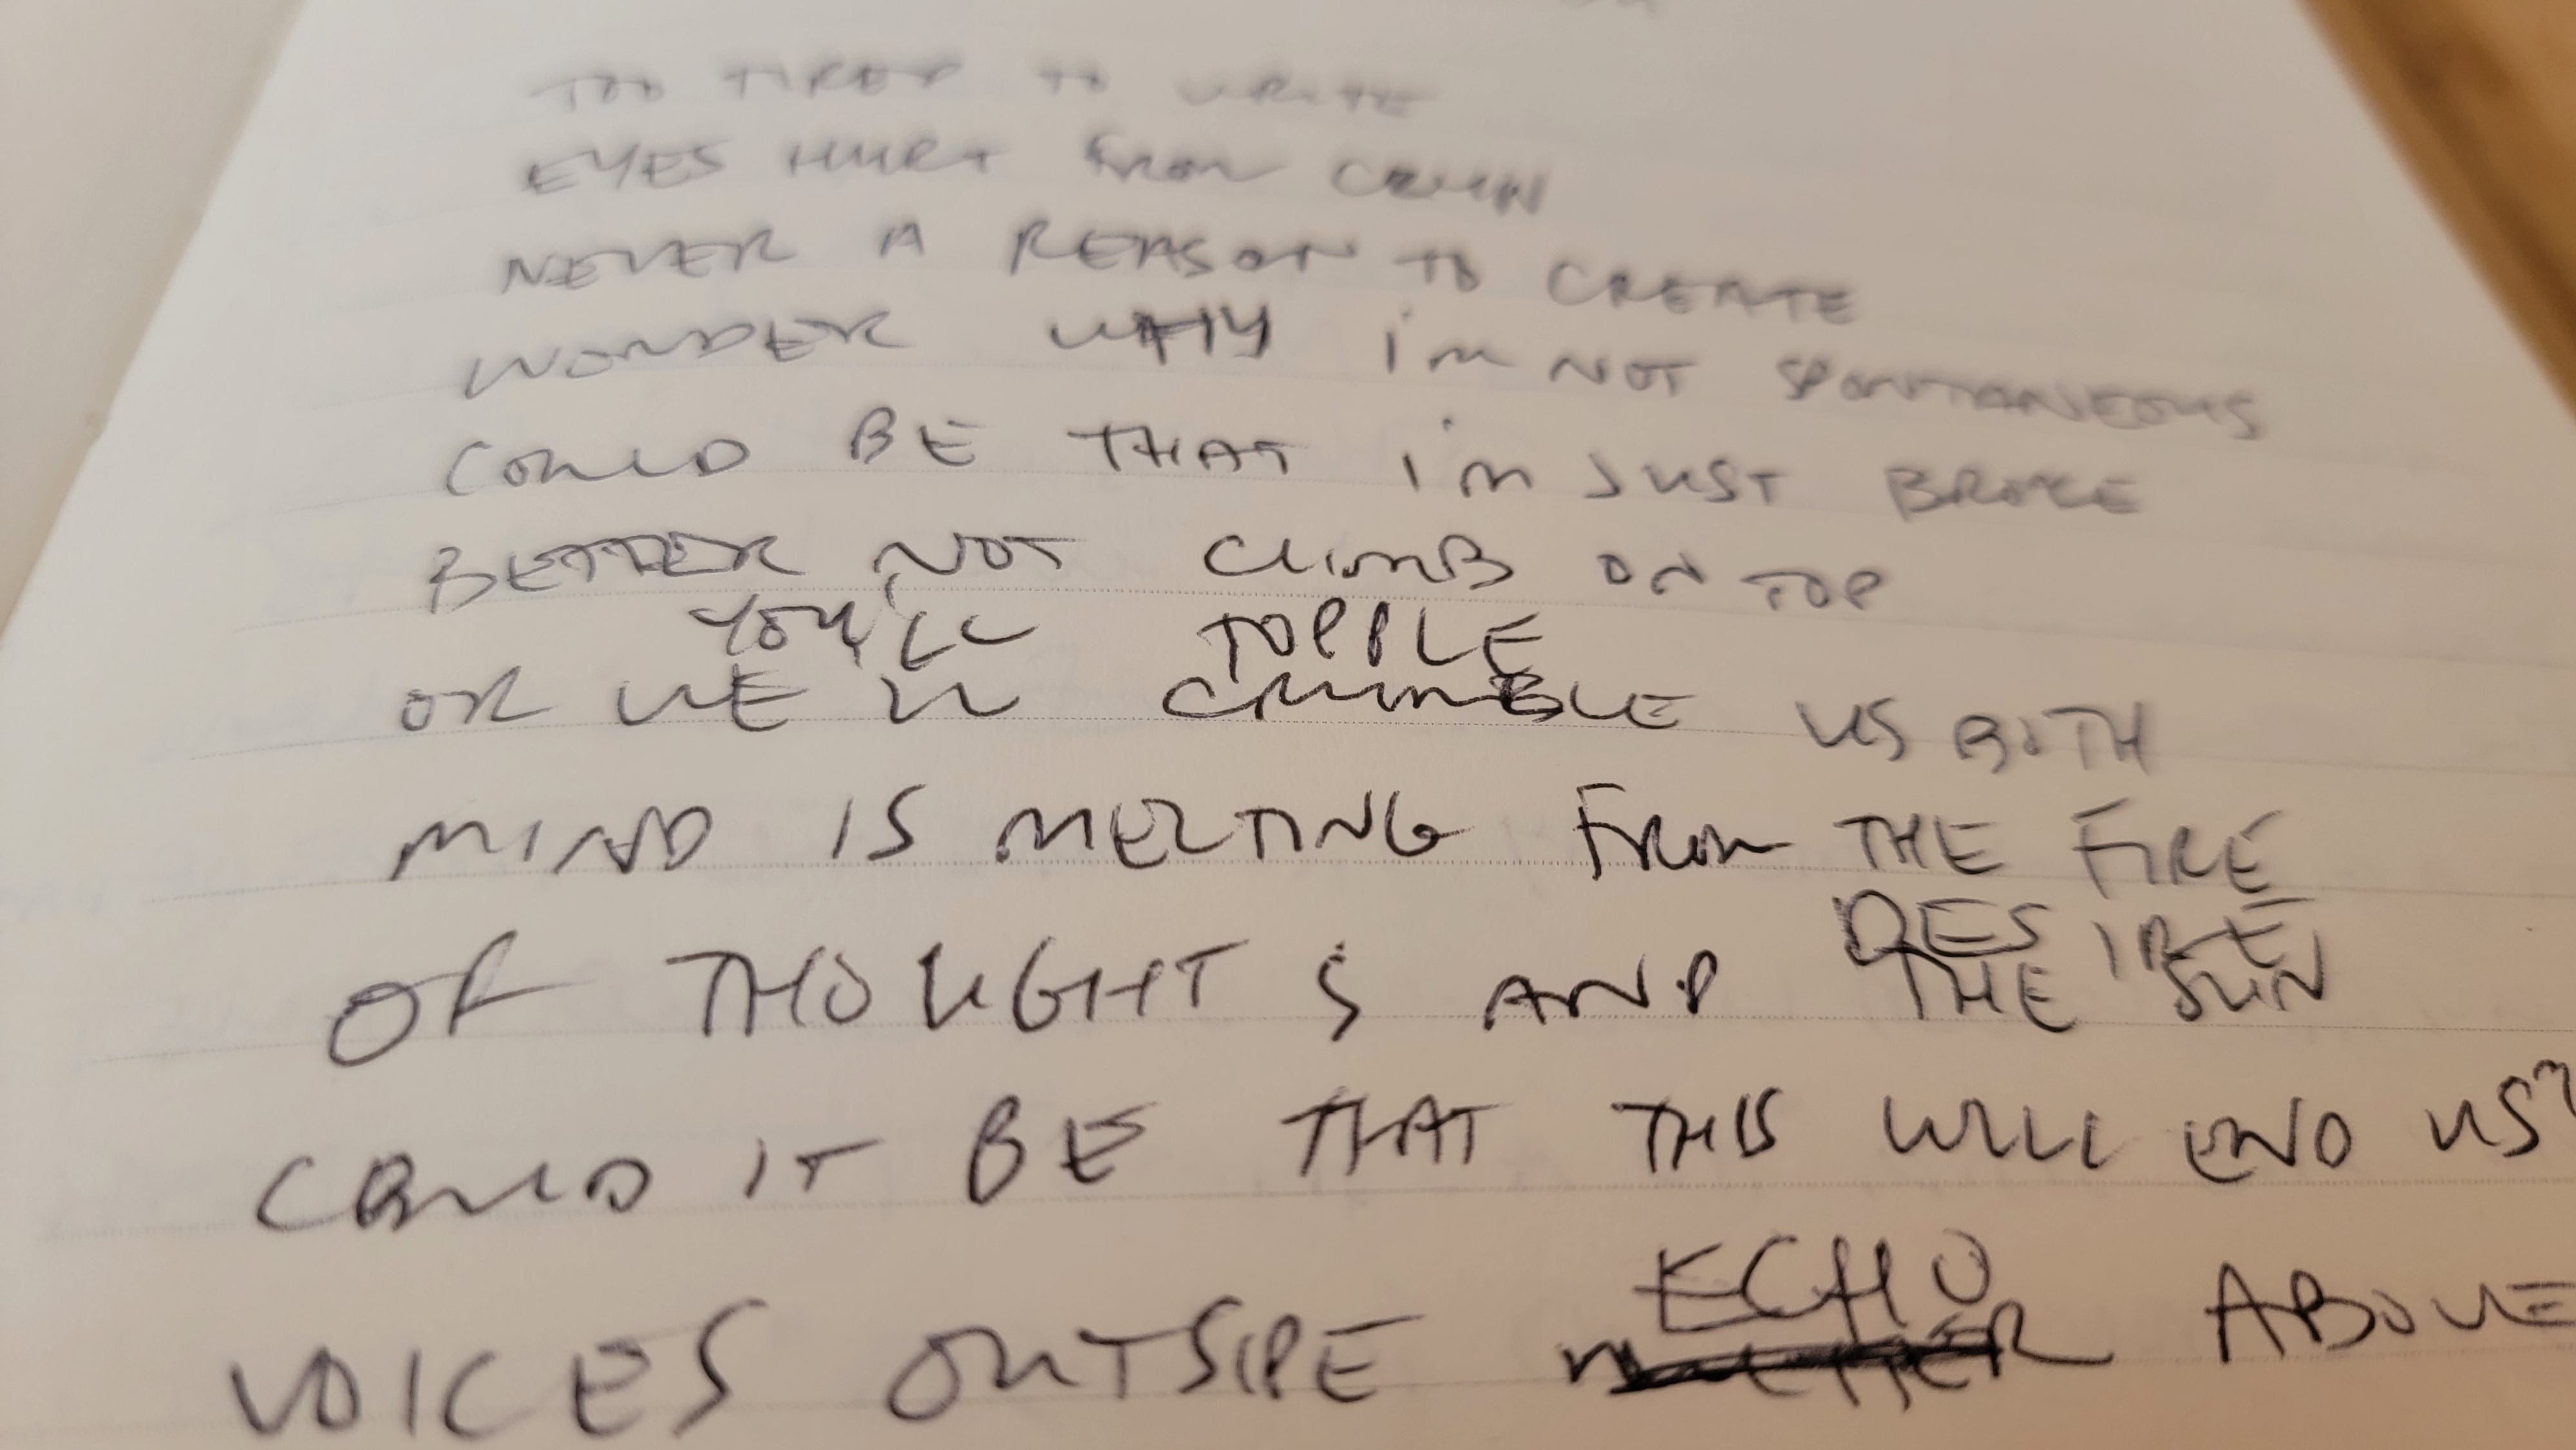 TOO TIRED TO WRITE
EYES HURT FROM CRYIN
NEVER A REASON TO CREATE
WONDER WHY i'm NOT SPONTANEOUS
COULD BE THAT i'm JUST BROKE
BETTER NOT CLIMB ON TOP
YOU'LL TOPPLE
OR WE'LL CRUMBLE US BOTH
MIND IS MELTING FROM THE FIRE
DESIRE
OF THOUGHTS AND THE SUN
COULD IT BE THAT THIS WILL END US?
ECHO
VOICES OUTSIDE ABOVE